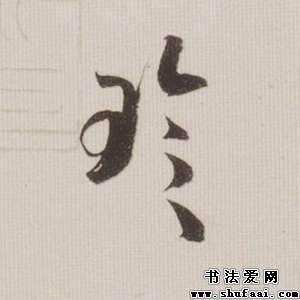 珍
书法爱网
www.shufaai.com